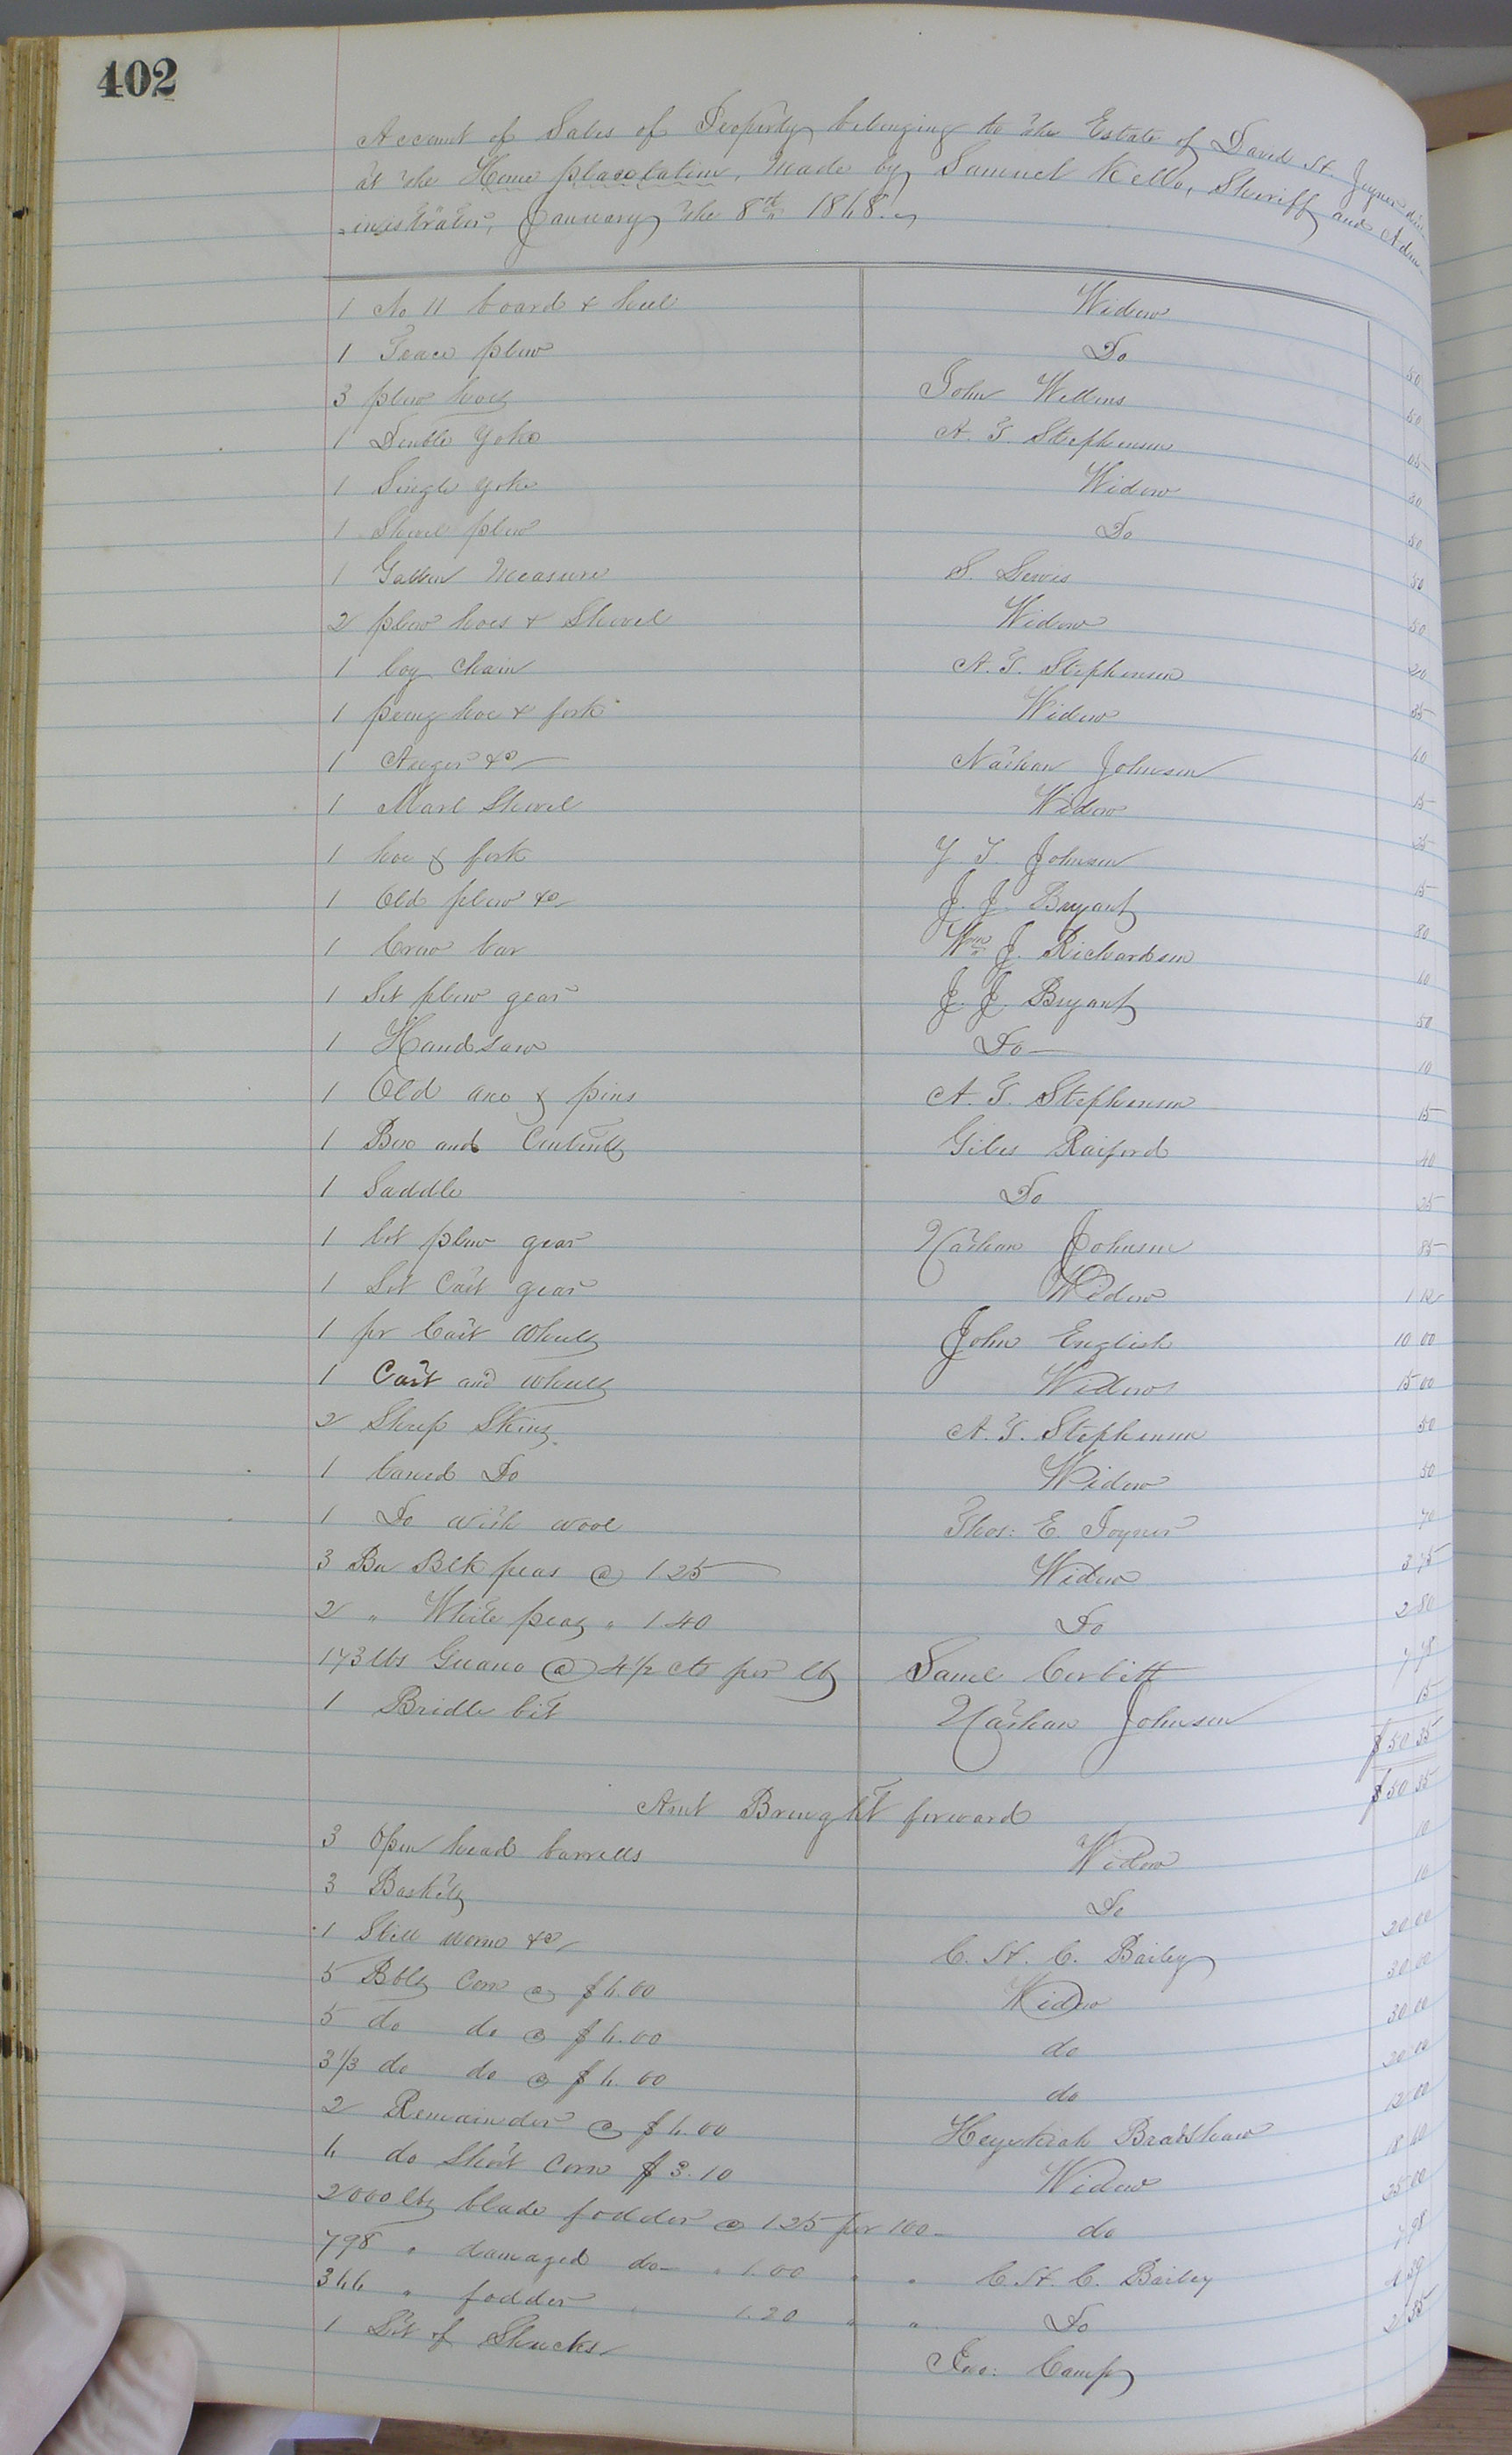 402
Account of Sales of Property belonging to the Estate of David H. Joyner
at the Home plantation, Made by Samuel Kello, Sheriff and Adm
-inistrator, January the 8th 1868.
1 No 11 board & heel Widow 50
1 Trace plow Do 50
3 plow hoes John Wellons 05
1 Double Yoke A. T. Stephenson 30
1 Single yoke Widow 50
1 Shovel plow Do 50
1 Gallon Measure S. Lewis 50
2 plow hoes & Shovel Widow 20
1 log chain A. T. Stephenson 35
1 prong hoe & fork Widow 60
1 Auger &c Nathan Johnson 15
1 Marl Shovel Widow 25
1 hoe & fork Y. T. Johnson 15
1 Old plow &c J. J. Bryant 80
1 Crow bar Wm J. Richardson 60
1 Set plow gear J. J. Bryant 50
1 Handsaw Do 10
1 Old axe & pins A. T. Stephenson 15
1 Box and Contents Giles Raiford 40
1 Saddle Do 25
1 lot plow gear Nathan Johnson 85
1 Set Cart gear Widow 1 12
1 pr Cart Wheels John English 10 00
1 Cart and wheels Widow 15 00
2 Sheep Skins A. T. Stephenson 50
1 tanned Do Widow 50
1 Do with wool Thos: E. Joyner 70
3 Bu Blk peas @ 1 25 Widow 3 75
2 " White peas " 1.40 Do 2 80
173 lbs Guano @ 4 1/2 cts per lb Saml Corbitt 7 78
1 Bridle bit Nathan Johnson 15
$50 35
Amt Brought forward $50 35
3 Open head barrells Widow 10
3 Baskets Do 10
1 Still worm &c C. H. C. Bailey 20 00
5 Bbls Corn @ $6.00 Widow 30 00
5 do do @ $6.00 do 30 00
3 1/3 do do @ $6.00 do 20 00
2 Remainder @ $6.00 Hezekiah Bradshaw 12 00
6 do Short Corn $3.10 Widow 18 60
2000 lbs blade fodder @ 1.25 per 100 do 25 00
798 " damaged do " 1.00 " " C. H. C. Bailey 7 98
366 " fodder " 1.20 " " Do 4 39
1 Lot of Shucks Jno: Camp 2 35